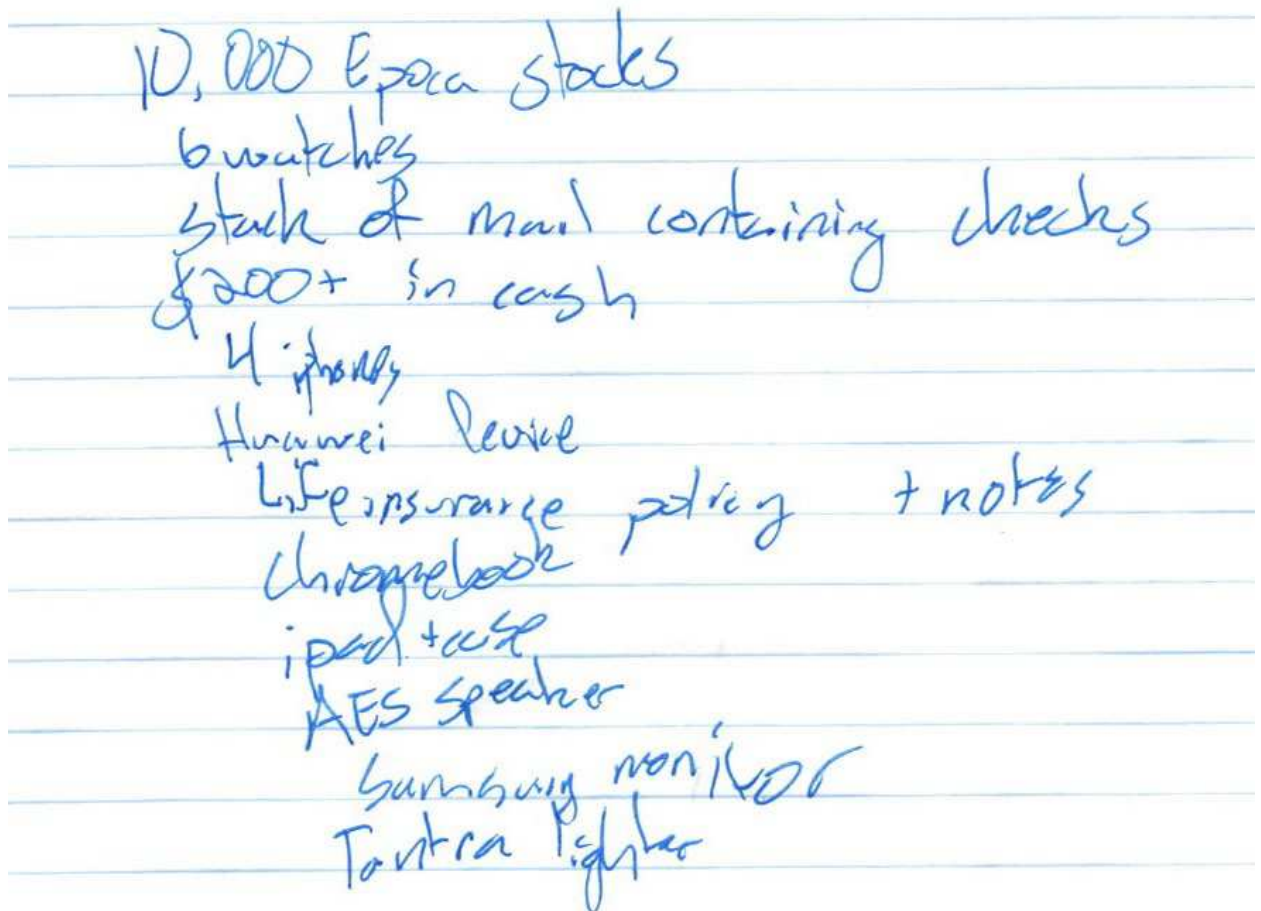 10,000 Epoca stocks
6 watches
stack of mail containing checks
$200+ in cash
4 iphones
Huawei Device
Life insurance policy + notes
Chromebook
ipad + case
AES speaker
Samsung monitor
Tantra lighter